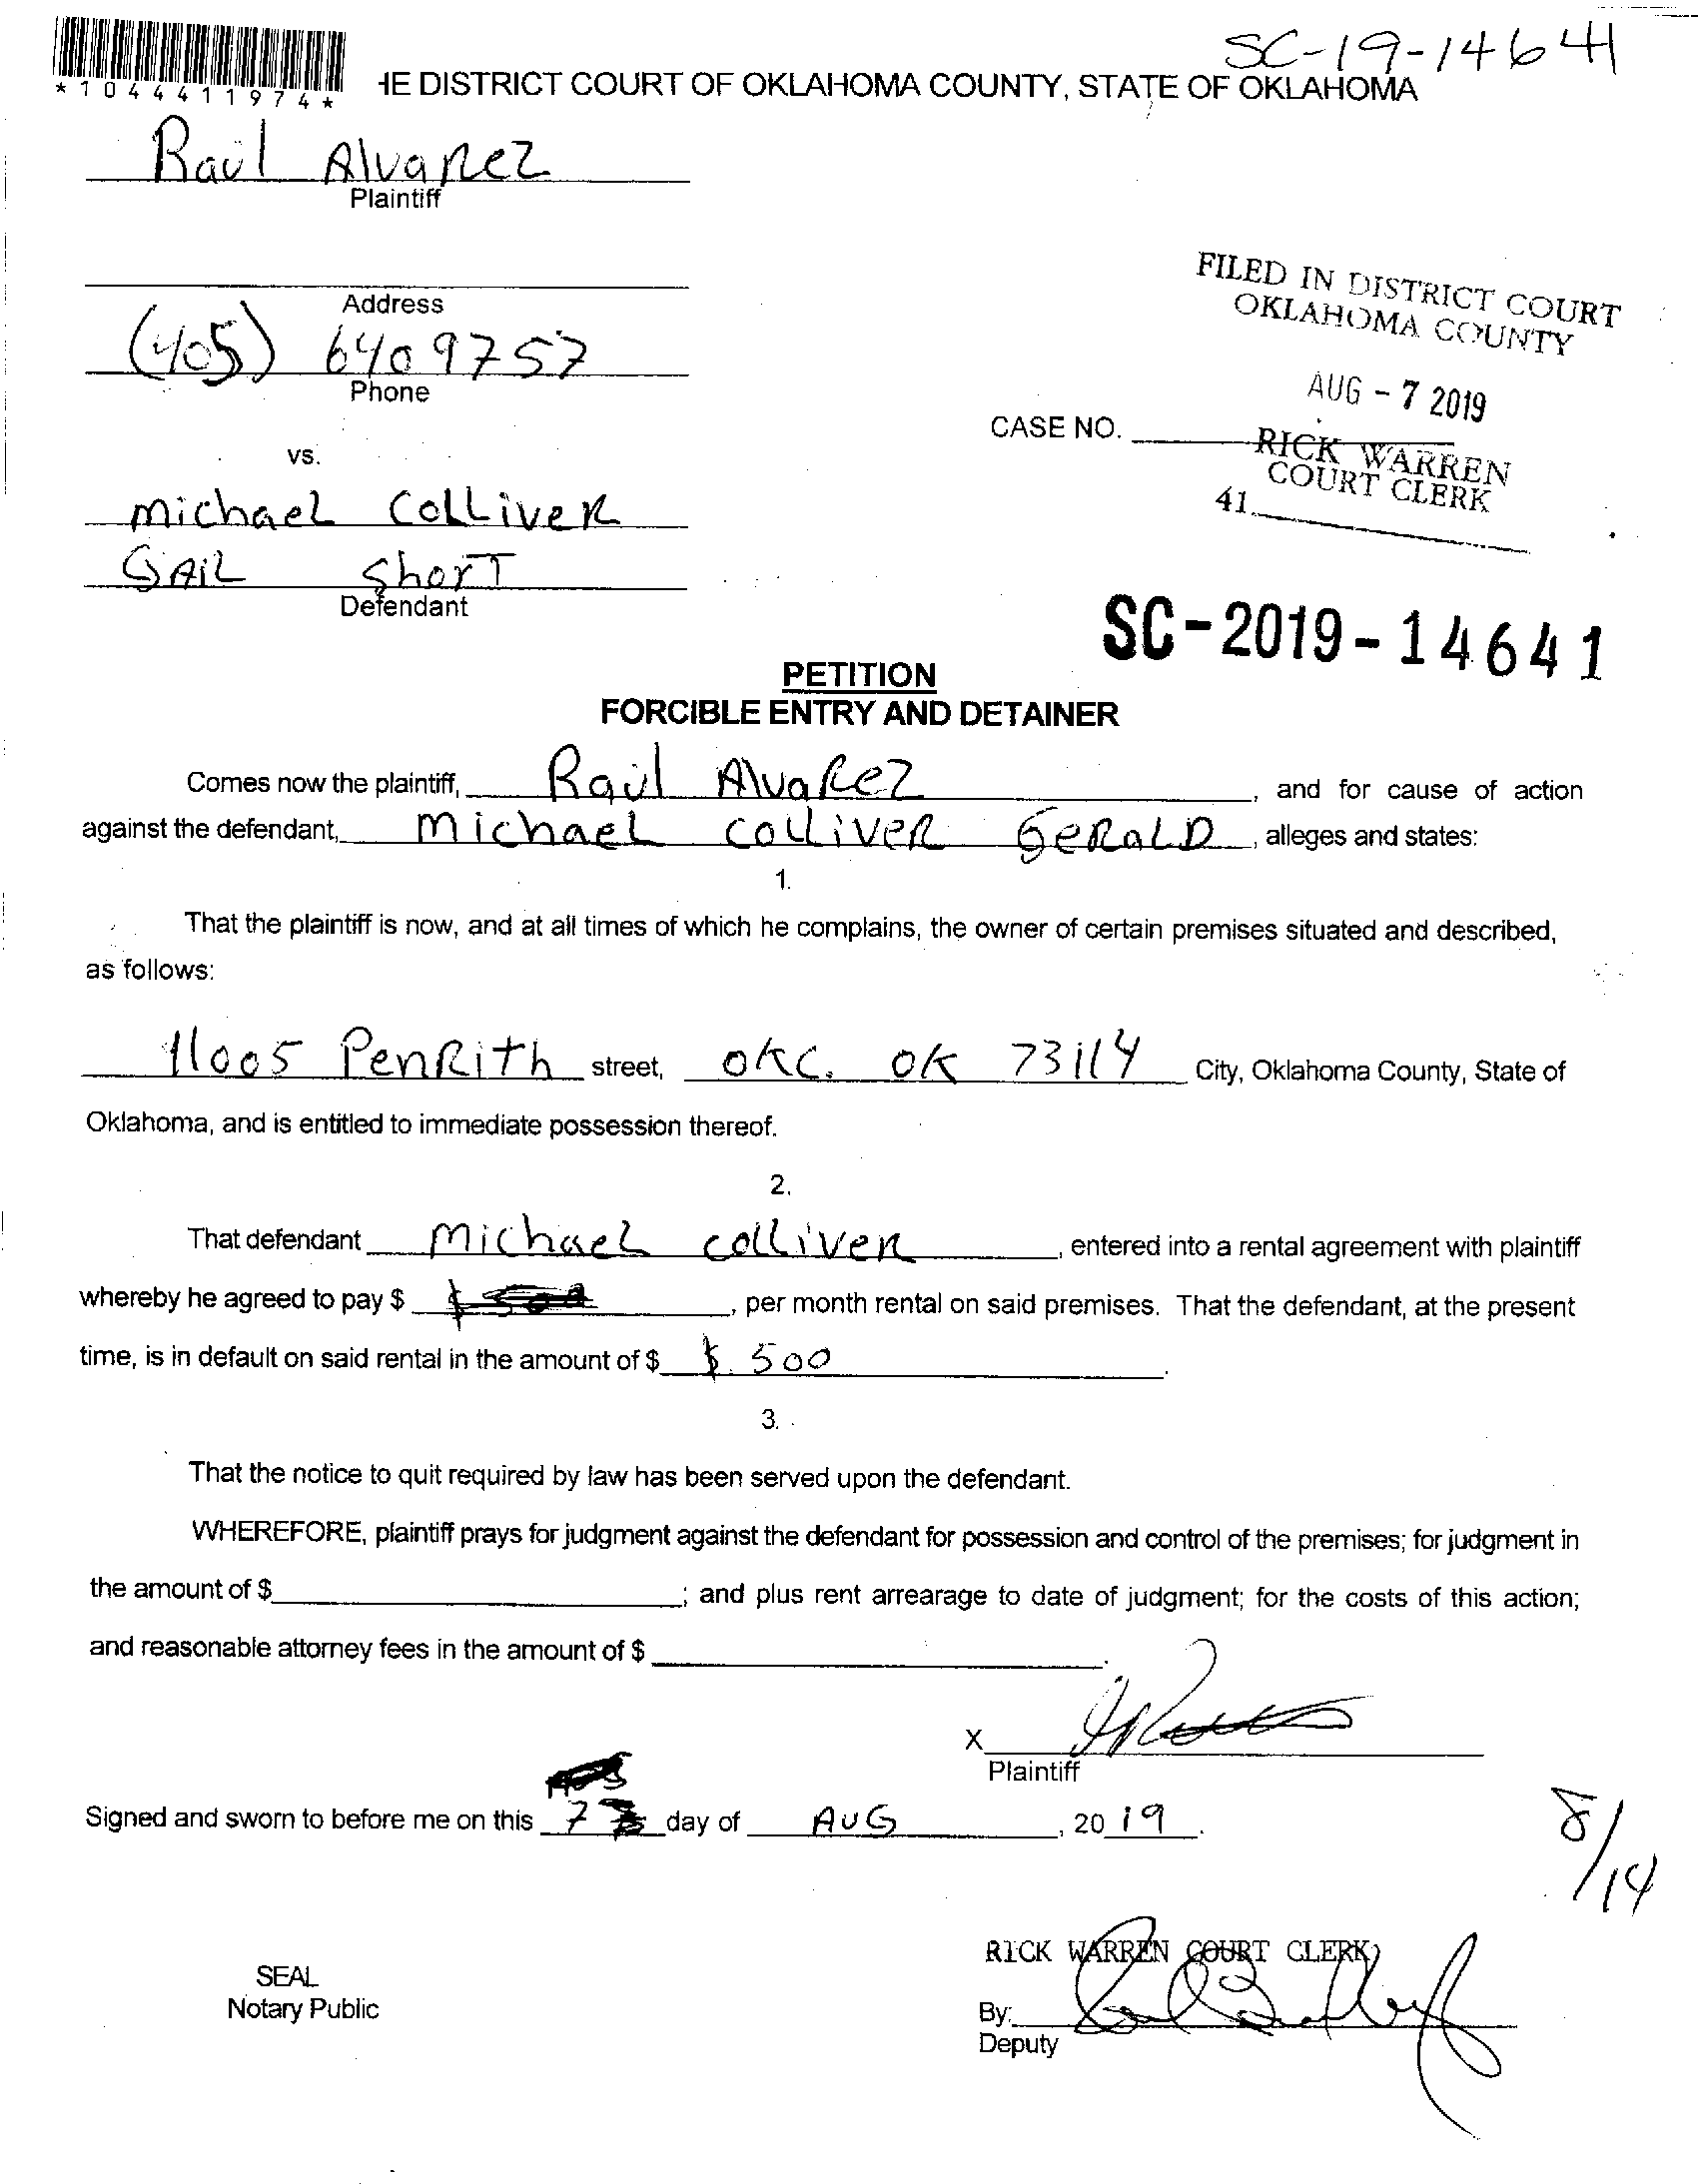 SC-19-14641
*1044411974*
HE DISTRICT COURT OF OKLAHOMA COUNTY, STATE OF OKLAHOMA
Raul Alvarez
Plaintiff
Address
(405) 640 9757
Phone
FILED IN DISTRICT COURT
OKLAHOMA COUNTY
AUG - 7 2019
RICK WARREN
COURT CLERK
41
CASE NO.
vs.
Michael Colliver
GAIL Short
Defendant
SC-2019-14641
PETITION
FORCIBLE ENTRY AND DETAINER
Comes now the plaintiff, Raul Alvarez, and for cause of action
against the defendant, Michael Colliver Gerald, alleges and states:
1.
That the plaintiff is now, and at all times of which he complains, the owner of certain premises situated and described,
as follows:
11005 Penrith street, OKC. OK 73114 City, Oklahoma County, State of
Oklahoma, and is entitled to immediate possession thereof.
2.
That defendant Michael Colliver, entered into a rental agreement with plaintiff
whereby he agreed to pay $ $, per month rental on said premises. That the defendant, at the present
time, is in default on said rental in the amount of $ $ 500.
3.
That the notice to quit required by law has been served upon the defendant.
WHEREFORE, plaintiff prays for judgment against the defendant for possession and control of the premises; for judgment in
the amount of $ ; and plus rent arrearage to date of judgment; for the costs of this action;
and reasonable attorney fees in the amount of $ .
X
Plaintiff
Signed and sworn to before me on this 7 day of AUG, 2019.
8/14
RICK WARREN COURT CLERK
SEAL
Notary Public
By:
Deputy